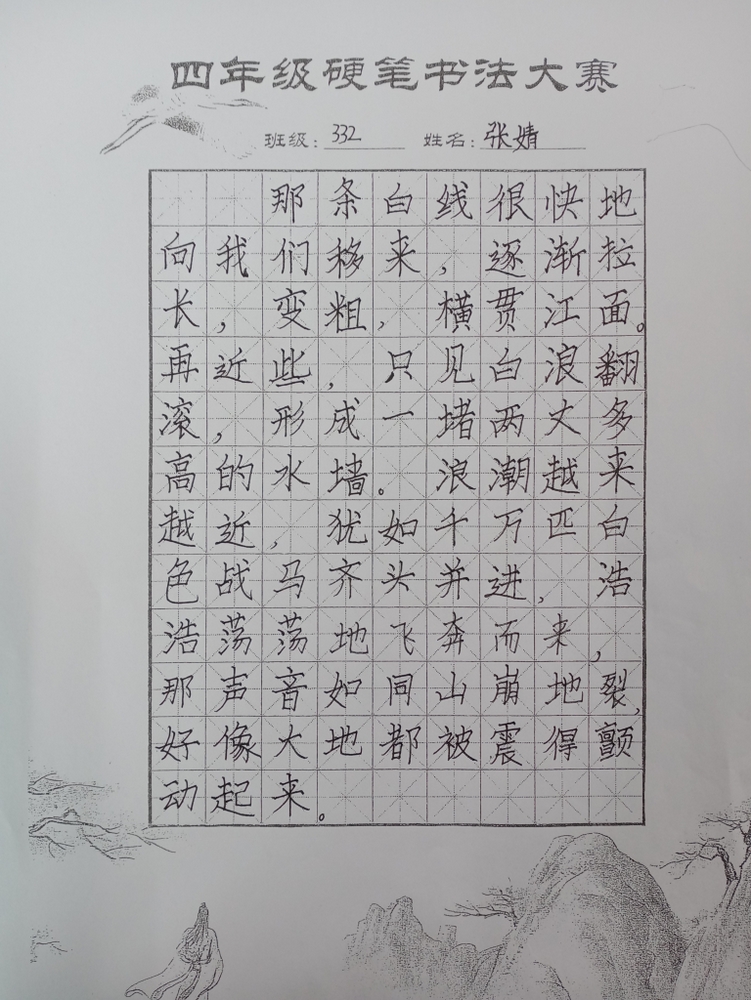 四年级硬笔书法大赛
班级：332 姓名：张婧
那条白线很快地
向我们移来，逐渐拉
长，变粗，横贯江面。
再近些，只见白浪翻
滚，形成一堵两丈多
高的水墙。浪潮越来
越近，犹如千万匹白
色战马齐头并进，浩
浩荡荡地飞奔而来，
那声音如同山崩地裂，
好像大地都被震得颤
动起来。